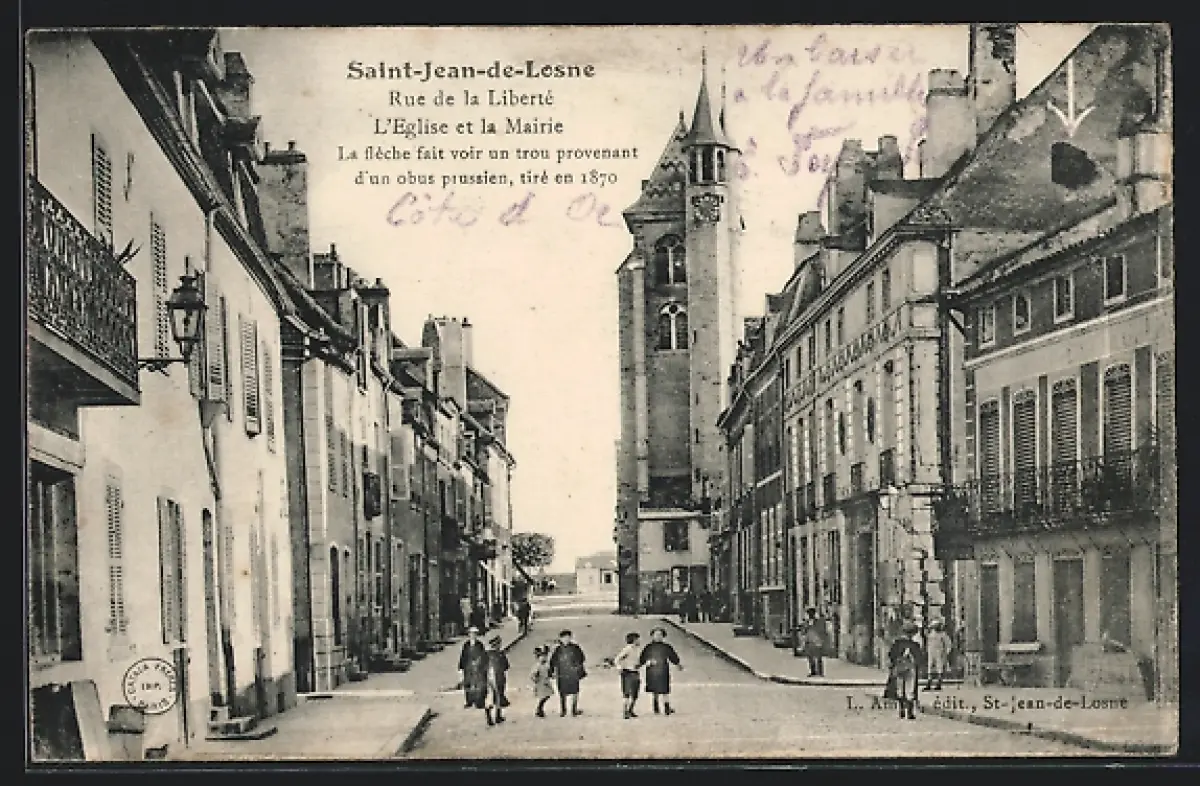 Saint-Jean-de-Losne
Rue de la Liberté
L'Eglise et la Mairie
La flèche fait voir un trou provenant
d'un obus prussien, tiré en 1870
Côte d Or
baiser
à la famille
édit., St-Jean-de-Losne